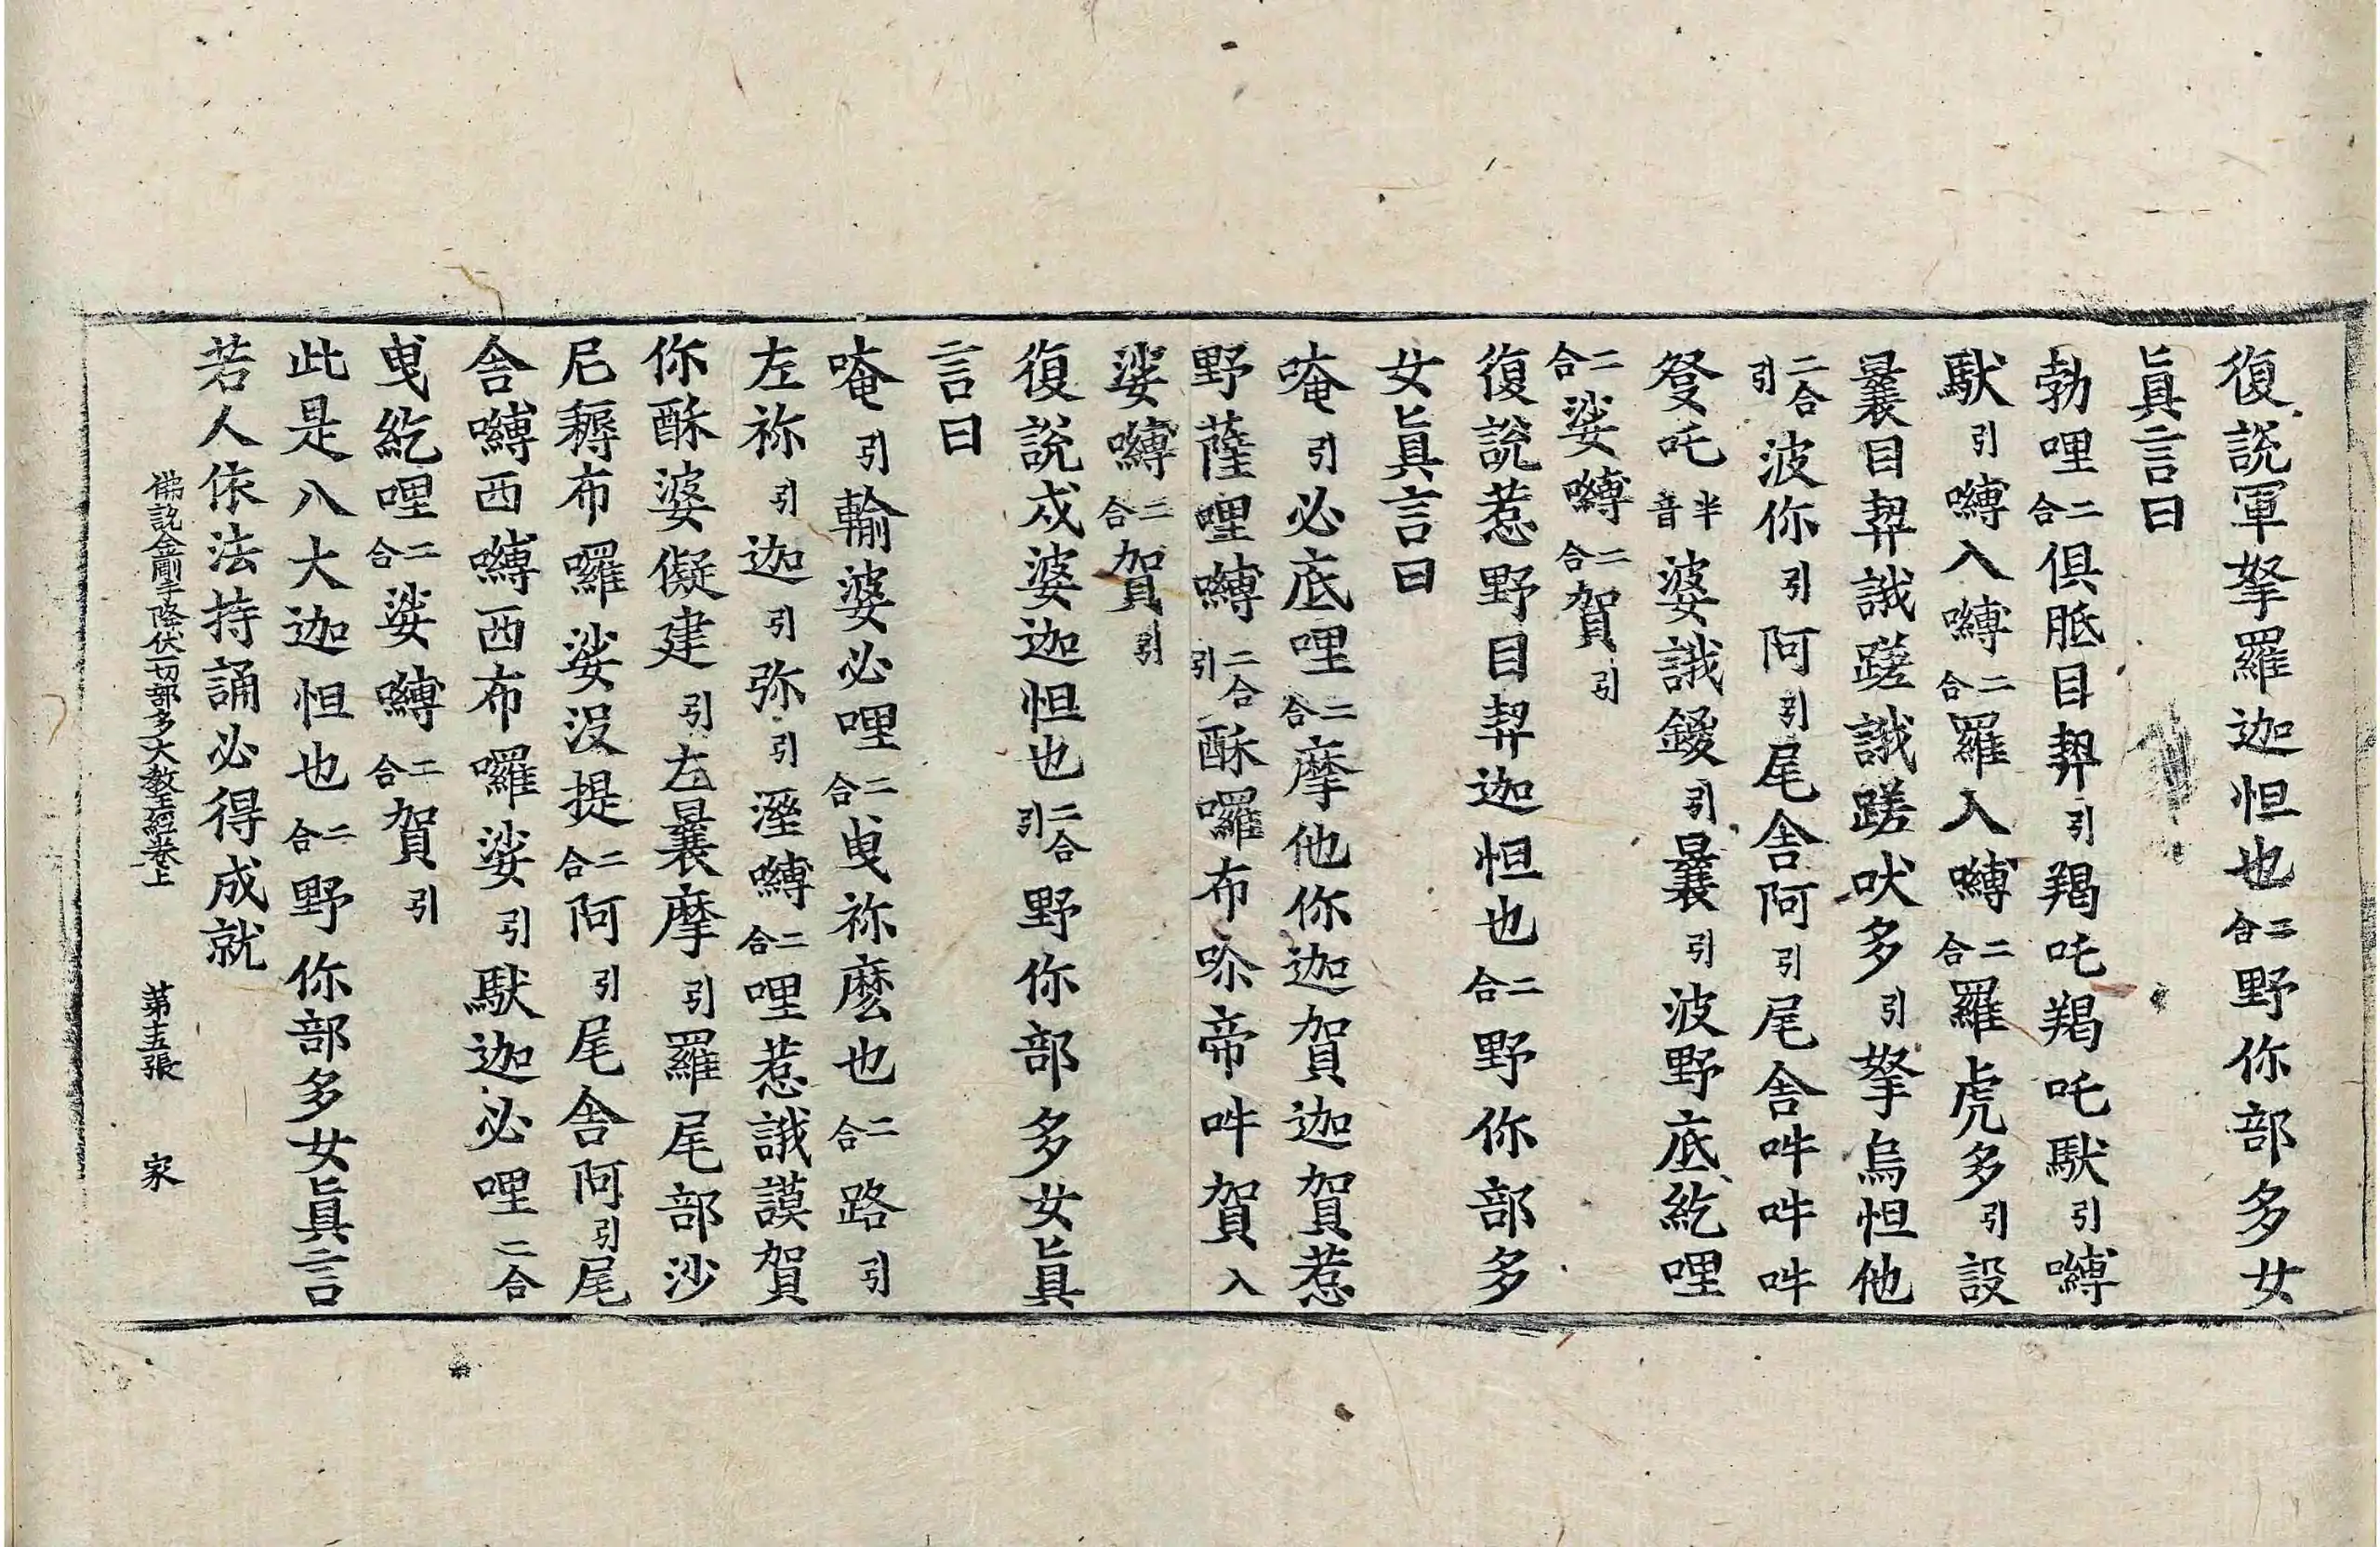 復說軍拏羅迦怛也二合野你部多女
眞言曰
勃哩二合俱胝目契引羯吒羯吒䭾引嚩
䭾引嚩入嚩二合羅入嚩二合羅虎多引設
曩目契誐蹉誐蹉吠多引拏烏怛他
二合引波你引阿引尾舍阿引尾舍吽吽吽
發吒半音婆誐鑁引曩引波野底紇哩
二合娑嚩二合賀引
復說惹野目契迦怛也二合野你部多
女眞言曰
唵引必底哩二合摩他你迦賀迦賀惹
野薩哩嚩二合引酥囉布𠴊帝吽賀入
娑嚩二合賀引
復說戍婆迦怛也二合引野你部多女眞
言曰
唵引輸婆必哩二合曳祢麽也二合路引
左祢引迦引弥引溼嚩二合哩惹誐謨賀
你酥婆儗建引左曩摩引羅尾部沙
尼耨布囉娑沒提二合阿引尾舍阿引尾
舍嚩西嚩西布囉娑引䭾迦必哩二合
曳紇哩二合娑嚩二合賀引
此是八大迦怛也二合野你部多女眞言
若人依法持誦必得成就
佛說金剛手降伏一切部多大教王經卷上 第十五張 家